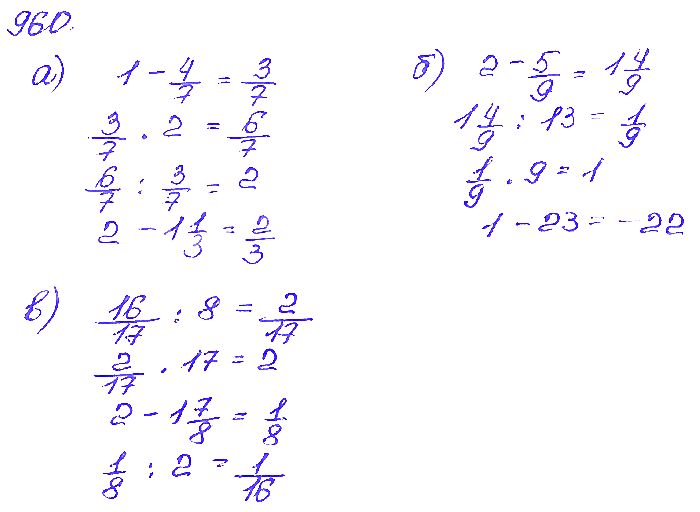 960.
а) 1 - 4/7 = 3/7
3/7 · 2 = 6/7
6/7 : 3/7 = 2
2 - 1 1/3 = 2/3
б) 2 - 5/9 = 1 4/9
1 4/9 : 13 = 1/9
1/9 · 9 = 1
1 - 23 = -22
в) 16/17 : 8 = 2/17
2/17 · 17 = 2
2 - 1 7/8 = 1/8
1/8 : 2 = 1/16